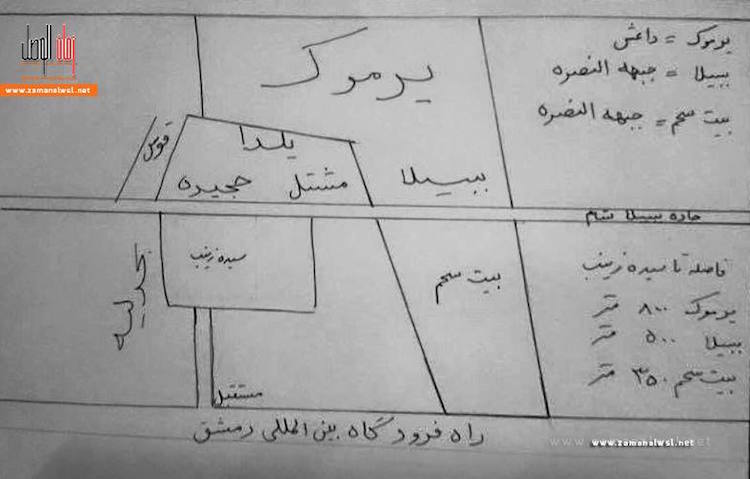 زمان الوصل
www.zamanalwsl.net
یرموک = داعش
ببیلا = جبهه النصره
بیت سحم = جبهه النصره
یرموک
یلدا
مشتل حجیره
ببیلا
جاده ببیلا شام
سیده زینب
بیت سحم
فاصله تا سیده زینب
یرموک ۸۰۰ متر
ببیلا ۵۰۰ متر
بیت سحم ۳۵۰ متر
مستقبل
راه فرودگاه بین المللی دمشق
www.zamanalwsl.net